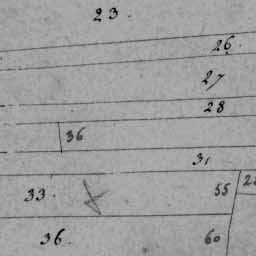 23.
26.
27
28
36
31
33. 55
36. 60